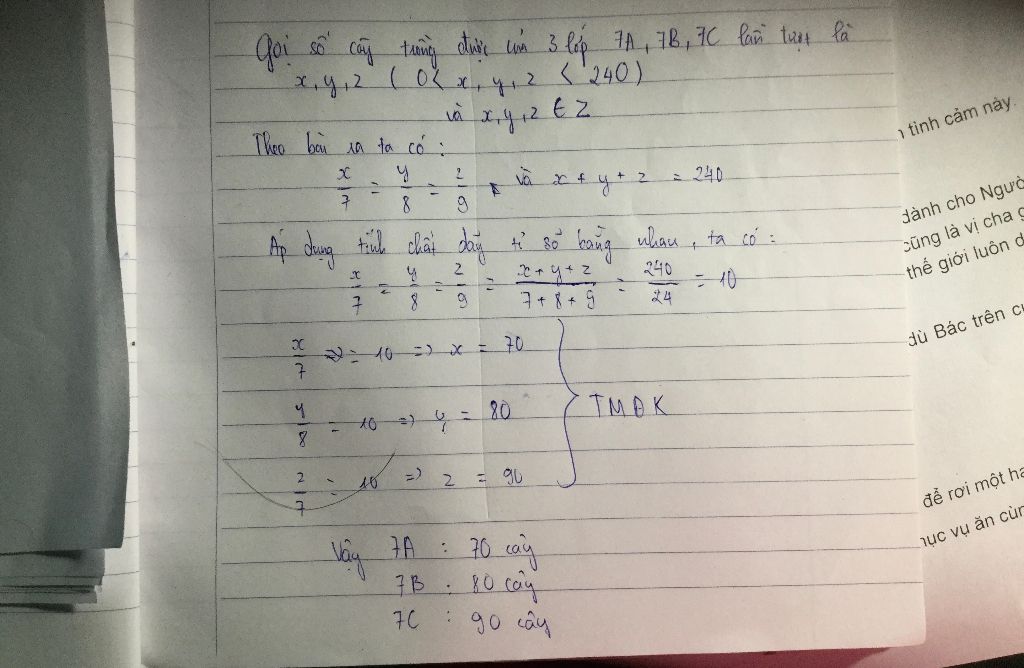 Gọi số cây trồng được của 3 lớp 7A, 7B, 7C lần lượt là
x, y, z ( 0 < x, y, z < 240)
và x, y, z ∈ Z
Theo bài ra ta có :
x/7 = y/8 = z/9 và x + y + z = 240
Áp dụng tính chất dãy tỉ số bằng nhau, ta có :
x/7 = y/8 = z/9 = (x+y+z)/(7+8+9) = 240/24 = 10
x/7 = 10 => x = 70
y/8 = 10 => y = 80
TMĐK
z/7 = 10 => z = 90
Vậy 7A : 70 cây
7B : 80 cây
7C : 90 cây
tình cảm này.
dành cho Ngườ
cũng là vị cha g
thế giới luôn d
dù Bác trên c
để rơi một hạ
hục vụ ăn cùn